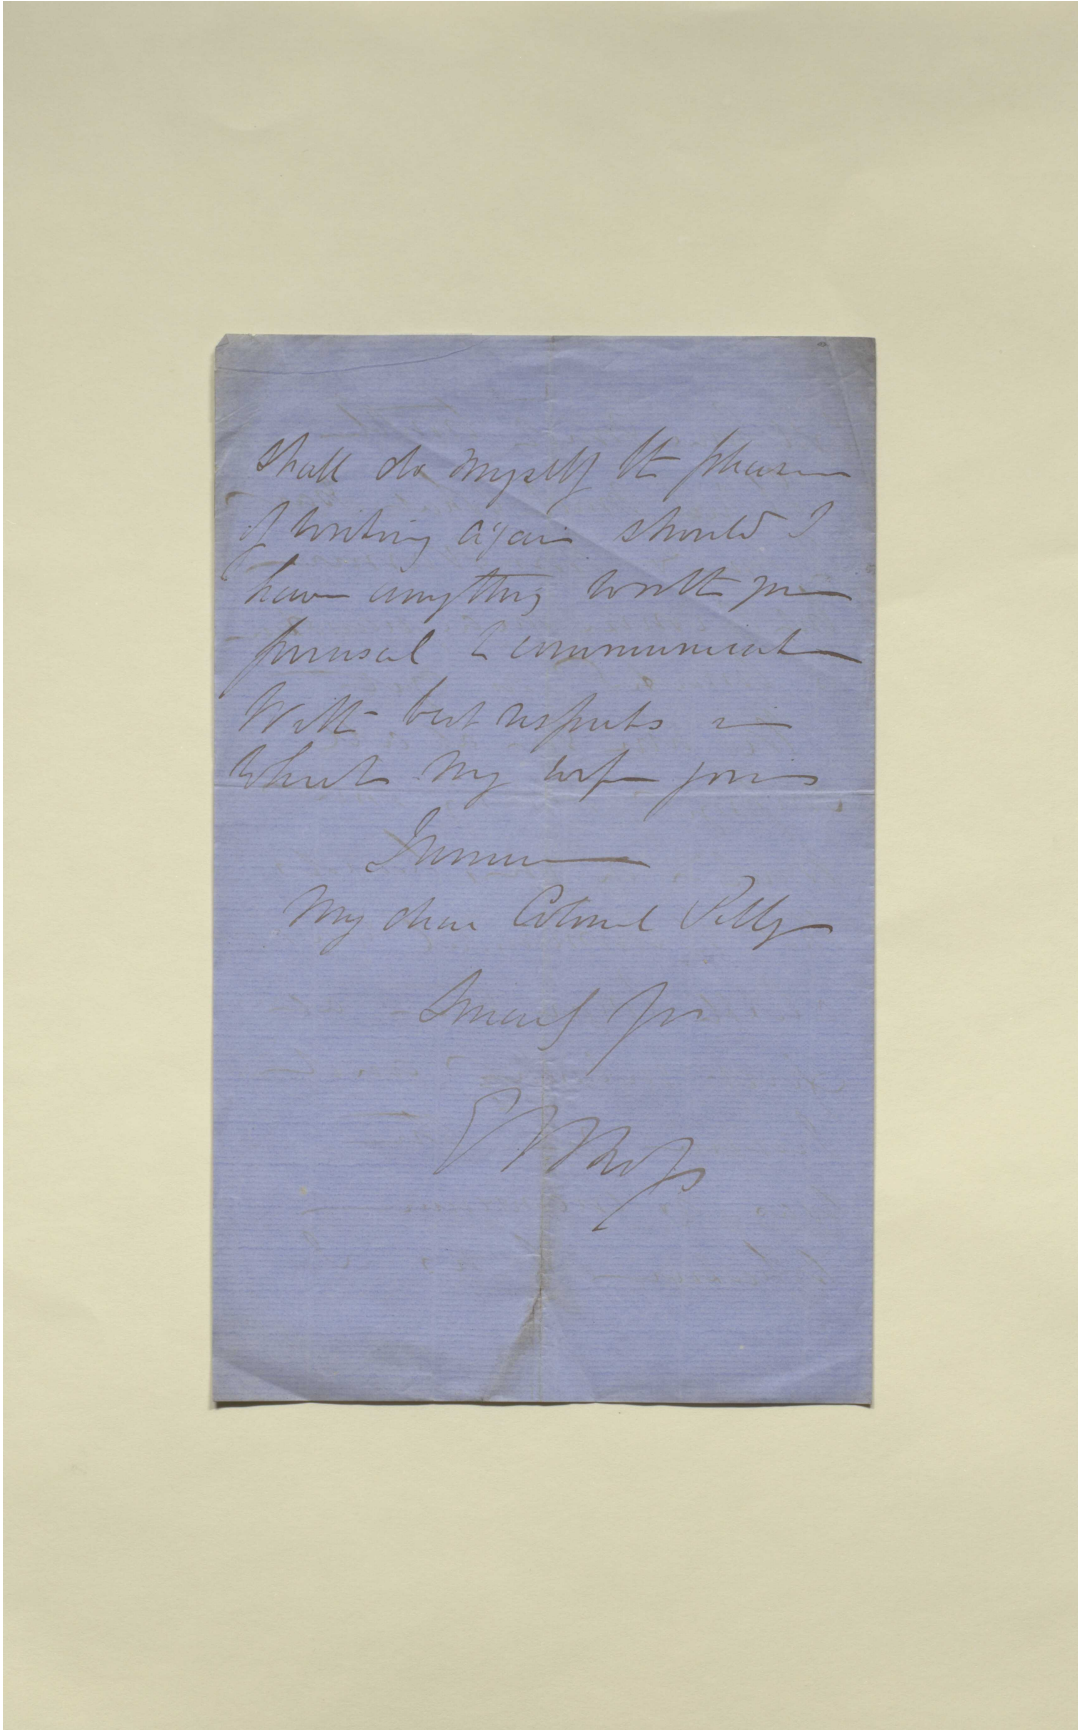 shall do myself the pleasure
of writing again should I
have anything worth your
perusal to communicate
With best respects in
which my wife joins
I remain
My dear Colonel Pelly
Sincerely yrs